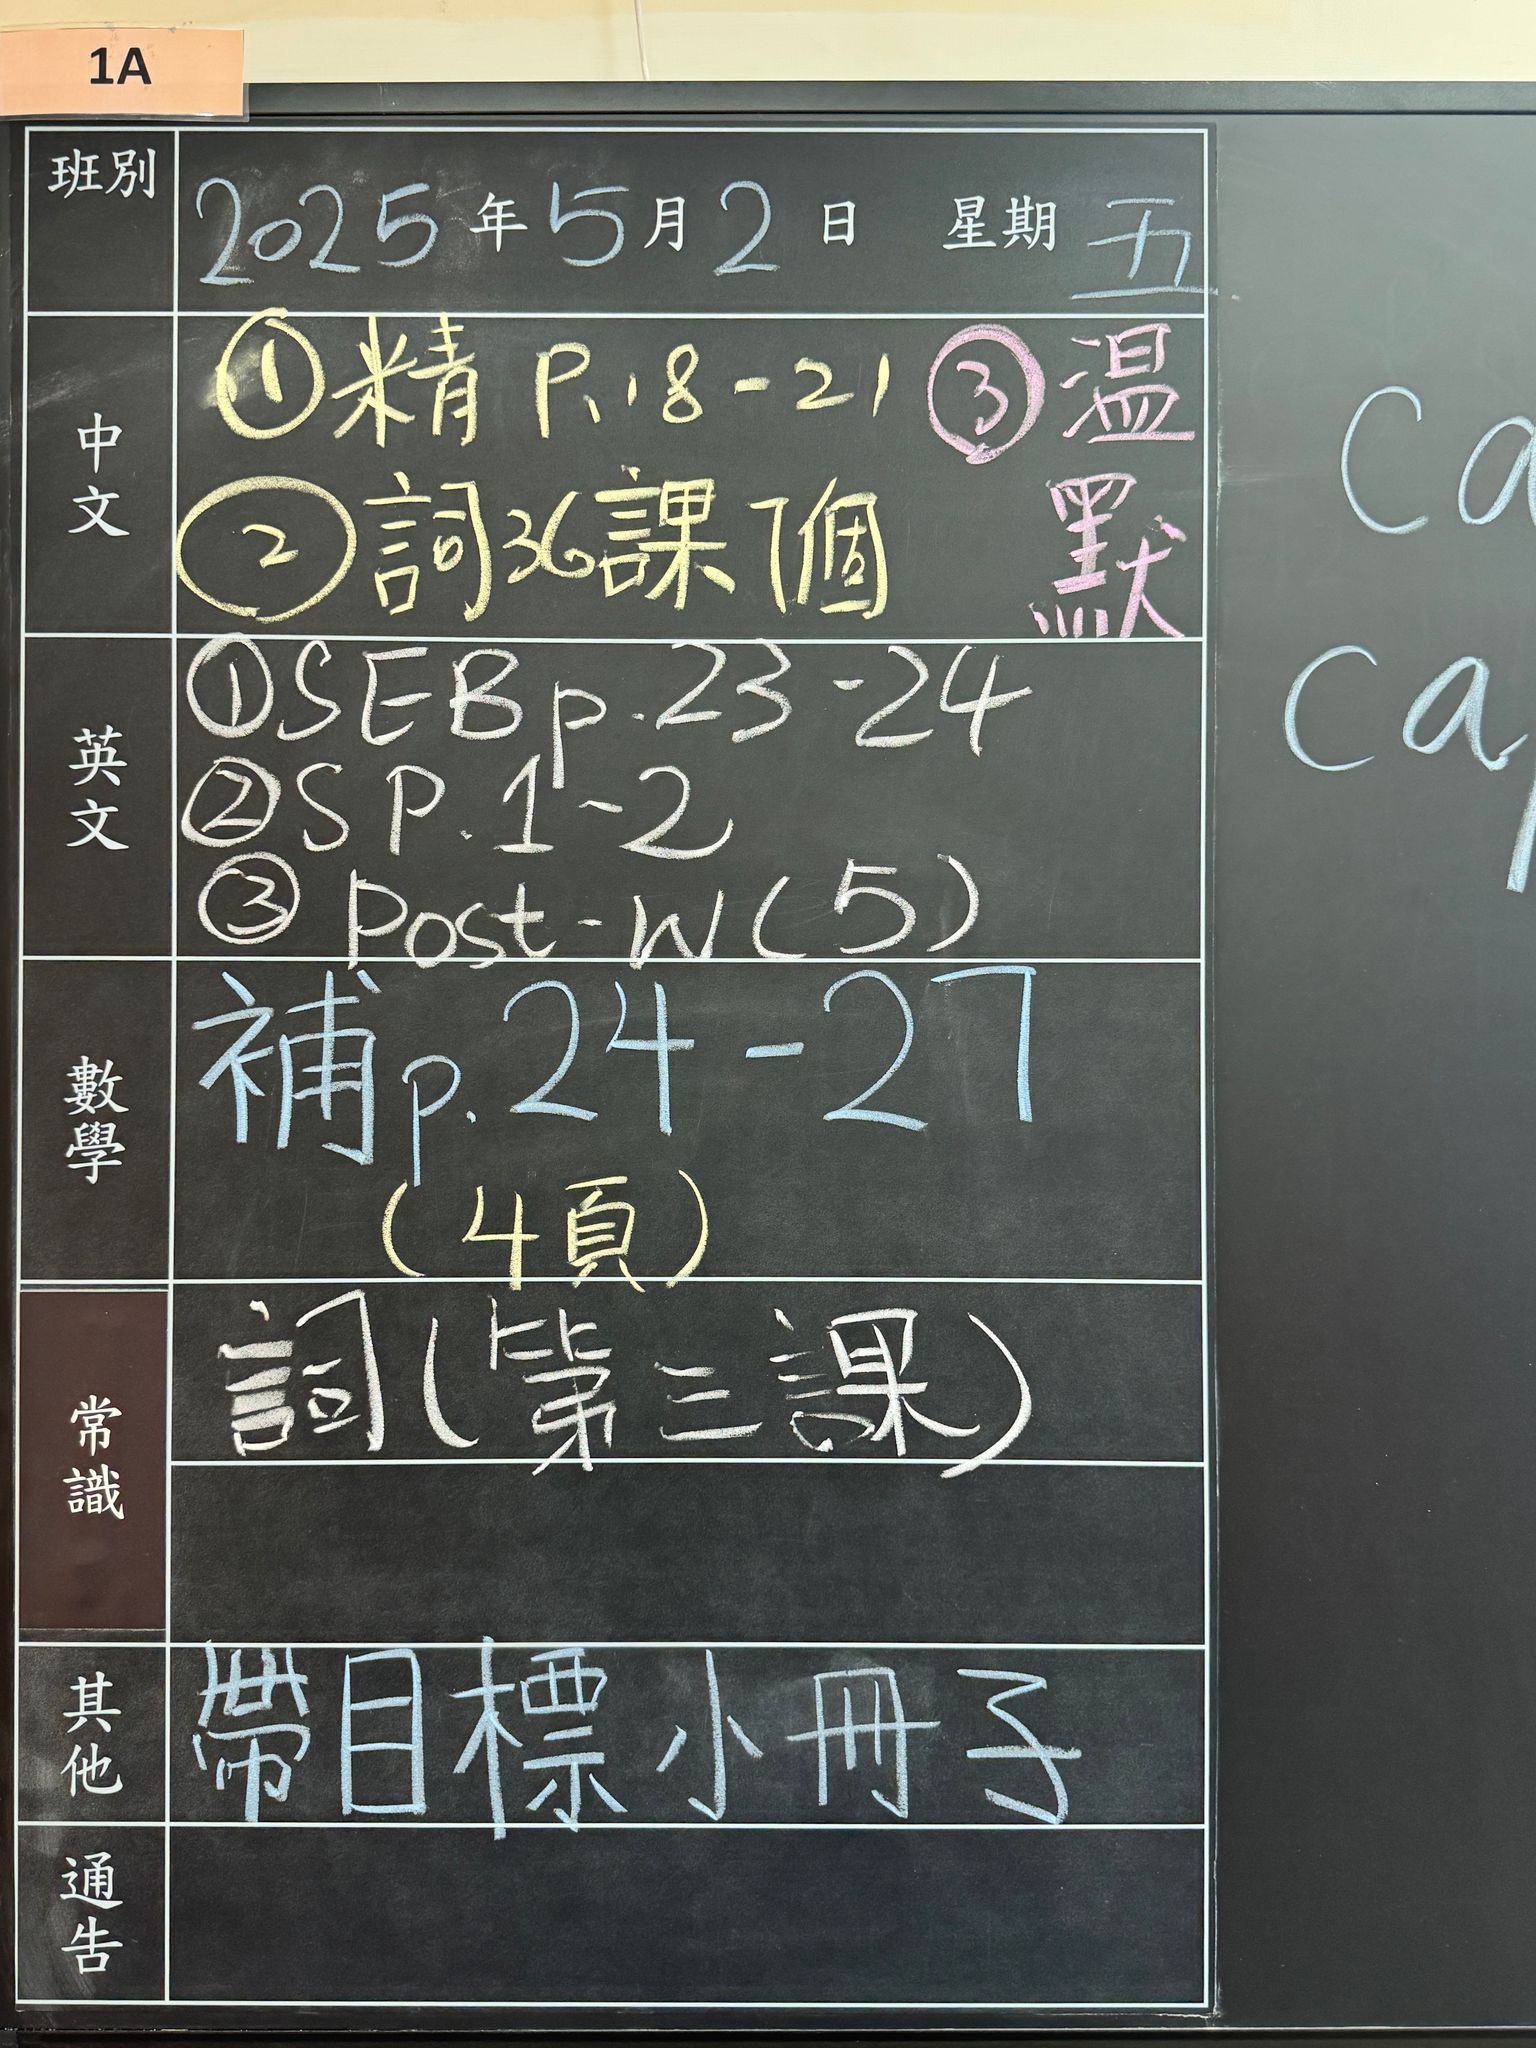 1A
班別
2025年5月2日 星期五
中文
①精 P.18-21 ③溫默
②詞36課7個
英文
①SEB p.23-24
②SP.1-2
③Post-W(5)
數學
補p.24-27
(4頁)
常識
詞(第三課)
其他
帶目標小冊子
通告
ca
ca